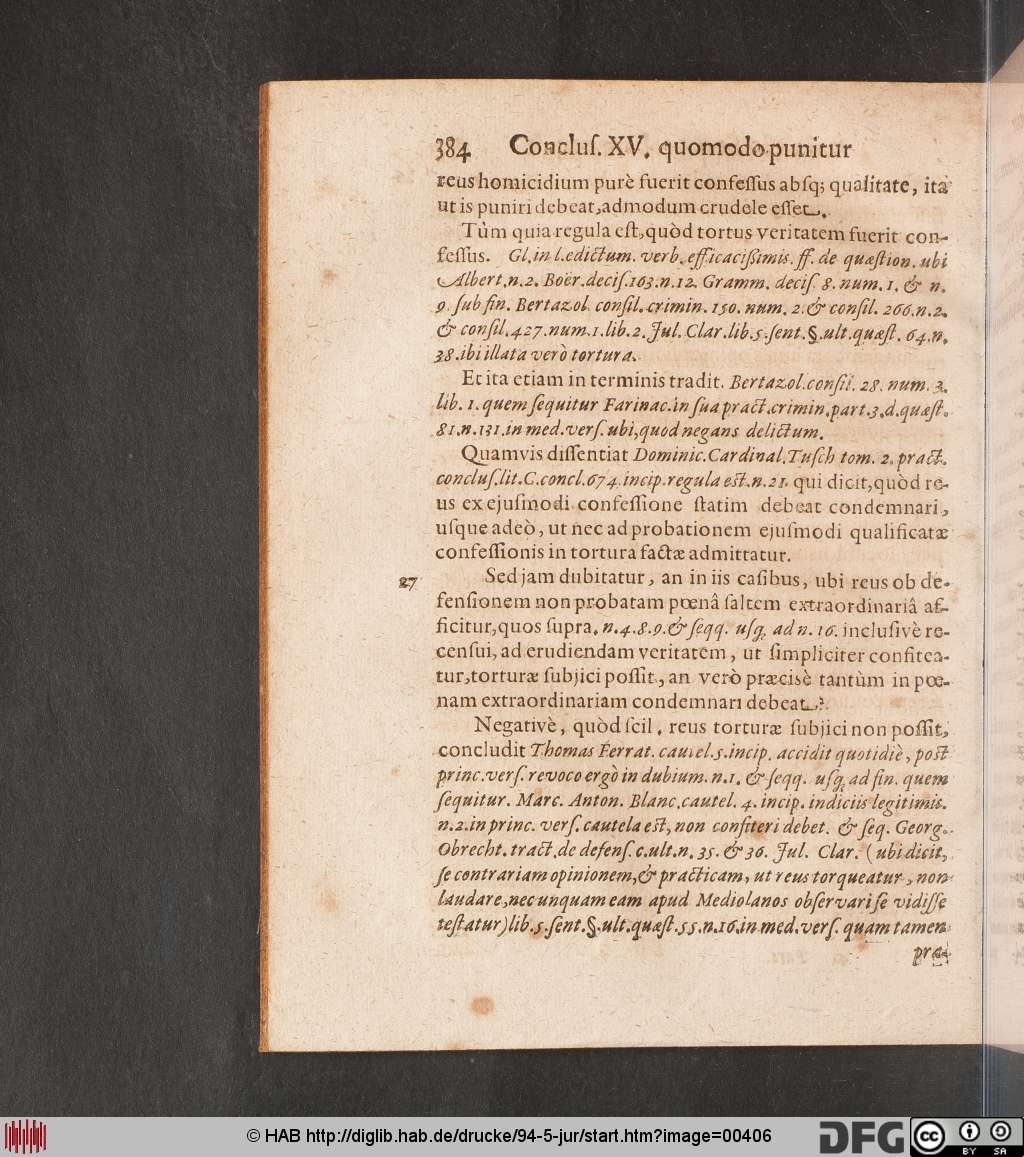 384 Concluſ. XV. quomodo punitur
reus homicidium purè fuerit confeſſus abſq; qualitate, ita
ut is puniri debeat, admodum crudele eſſet.
Tùm quia regula eſt, quòd tortus veritatem fuerit con-
feſſus. Gl. in l. edictum. verb. efficacißimis. ff. de quæſtion. ubi
Albert. n. 2. Boër. deciſ. 163. n. 12. Gramm. deciſ. 8. num. 1. & n.
9. ſub fin. Bertazol. conſil. crimin. 150. num. 2. & conſil. 266. n. 2.
& conſil. 427. num. 1. lib. 2. Jul. Clar. lib. 5. ſent. §. ult. quæſt. 64. n.
38. ibi illata verò tortura.
Et ita etiam in terminis tradit. Bertazol. conſil. 28. num. 3.
lib. 1. quem ſequitur Farinac. in ſua pract. crimin. part. 3. d. quæſt.
81. n. 131. in med. verſ. ubi, quod negans delictum.
Quamvis diſſentiat Dominic. Cardinal. Tuſch tom. 2. pract.
concluſ. lit. C. concl. 674. incip. regula est. n. 21. qui dicit, quòd re-
us ex ejuſmodi confeſſione ſtatim debeat condemnari,
uſque adeò, ut nec ad probationem ejuſmodi qualificatæ
confeſſionis in tortura factæ admittatur.
27 Sed jam dubitatur, an in iis caſibus, ubi reus ob de-
fenſionem non probatam pœnâ ſaltem extraordinariâ af-
ficitur, quos ſupra. n. 4. 8. 9. & ſeqq. uſq; ad n. 16. incluſivè re-
cenſui, ad erudiendam veritatem, ut ſimpliciter confitea-
tur, torturæ ſubjici poſſit, an verò præcisè tantùm in pœ-
nam extraordinariam condemnari debeat?
Negativè, quòd ſcil. reus torturæ ſubjici non poſſit,
concludit Thomas Ferrat. cautel. 5. incip. accidit quotidiè, post
princ. verſ. revoco ergò in dubium. n. 1. & ſeqq. uſq; ad fin. quem
ſequitur. Marc. Anton. Blanc. cautel. 4. incip. indiciis legitimis.
n. 2. in princ. verſ. cautela eſt, non confiteri debet. & ſeq. Georg.
Obrecht. tract. de defenſ. c. ult. n. 35. & 36. Jul. Clar. (ubi dicit,
ſe contrariam opinionem, & practicam, ut reus torqueatur, non
laudare, nec unquam eam apud Mediolanos obſervari ſe vidiſſe
teſtatur) lib. 5. ſent. §. ult. quæſt. 55. n. 16. in med. verſ. quam tamen
præ-
© HAB http://diglib.hab.de/drucke/94-5-jur/start.htm?image=00406
DFG
cc BY SA